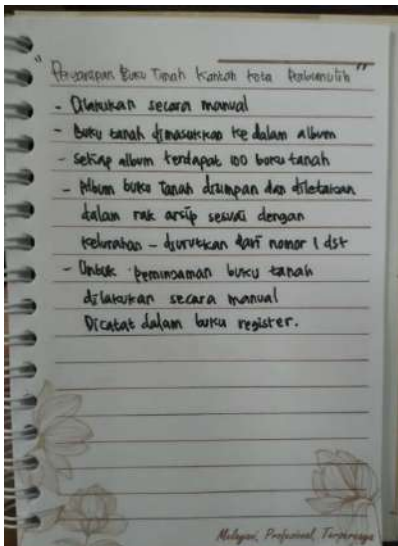 " Pengarsipan Buku Tanah Kantah Kota Prabumulih "
- Dilakukan secara manual
- Buku tanah dimasukkan ke dalam album
- Setiap album terdapat 100 buku tanah
- Album buku tanah disimpan dan diletakan
dalam rak arsip sesuai dengan
kelurahan - diurutkan dari nomor 1 dst
- Untuk peminjaman buku tanah
dilakukan secara manual
Dicatat dalam buku register.
Melayani, Profesional, Terpercaya